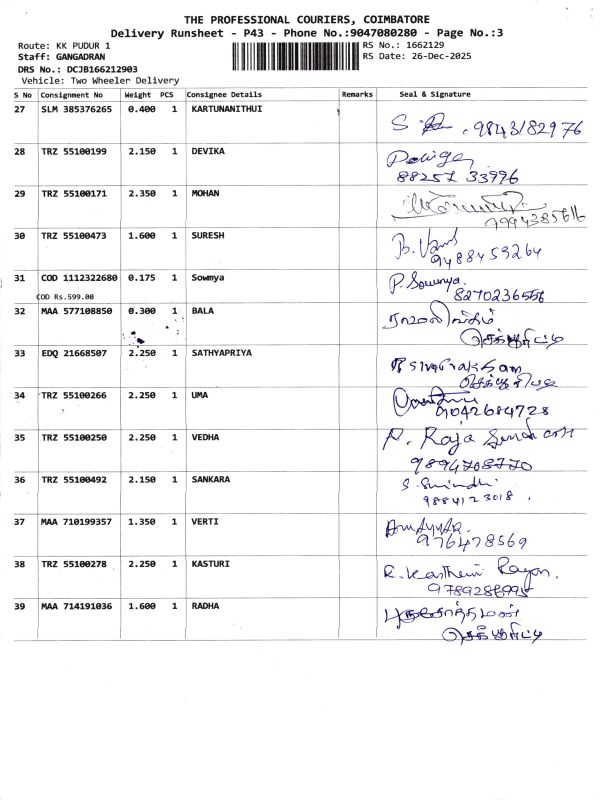 THE PROFESSIONAL COURIERS, COIMBATORE
Delivery Runsheet - P43 - Phone No.:9047080280 - Page No.:3
Route: KK PUDUR 1 RS No.: 1662129
Staff: GANGADRAN RS Date: 26-Dec-2025
DRS No.: DCJB166212903
Vehicle: Two Wheeler Delivery
S No Consignment No Weight PCS Consignee Details Remarks Seal & Signature
27 SLM 385376265 0.400 1 KARTUNANITHUI
9843182976
28 TRZ 55100199 2.150 1 DEVIKA
88257 33996
29 TRZ 55100171 2.350 1 MOHAN
9994385616
30 TRZ 55100473 1.600 1 SURESH
9488459264
31 COD 1112322680 0.175 1 Sowmya P. Sowmya
COD Rs.599.00
32 MAA 577108850 0.300 1 BALA
செக்யூரிட்டி
33 EDQ 21668507 2.250 1 SATHYAPRIYA
34 TRZ 55100266 2.250 1 UMA
9042684728
35 TRZ 55100250 2.250 1 VEDHA R. Raja
9894708770
36 TRZ 55100492 2.150 1 SANKARA
9884123018
37 MAA 710199357 1.350 1 VERTI
976478569
38 TRZ 55100278 2.250 1 KASTURI
39 MAA 714191036 1.600 1 RADHA
செக்யூரிட்டி